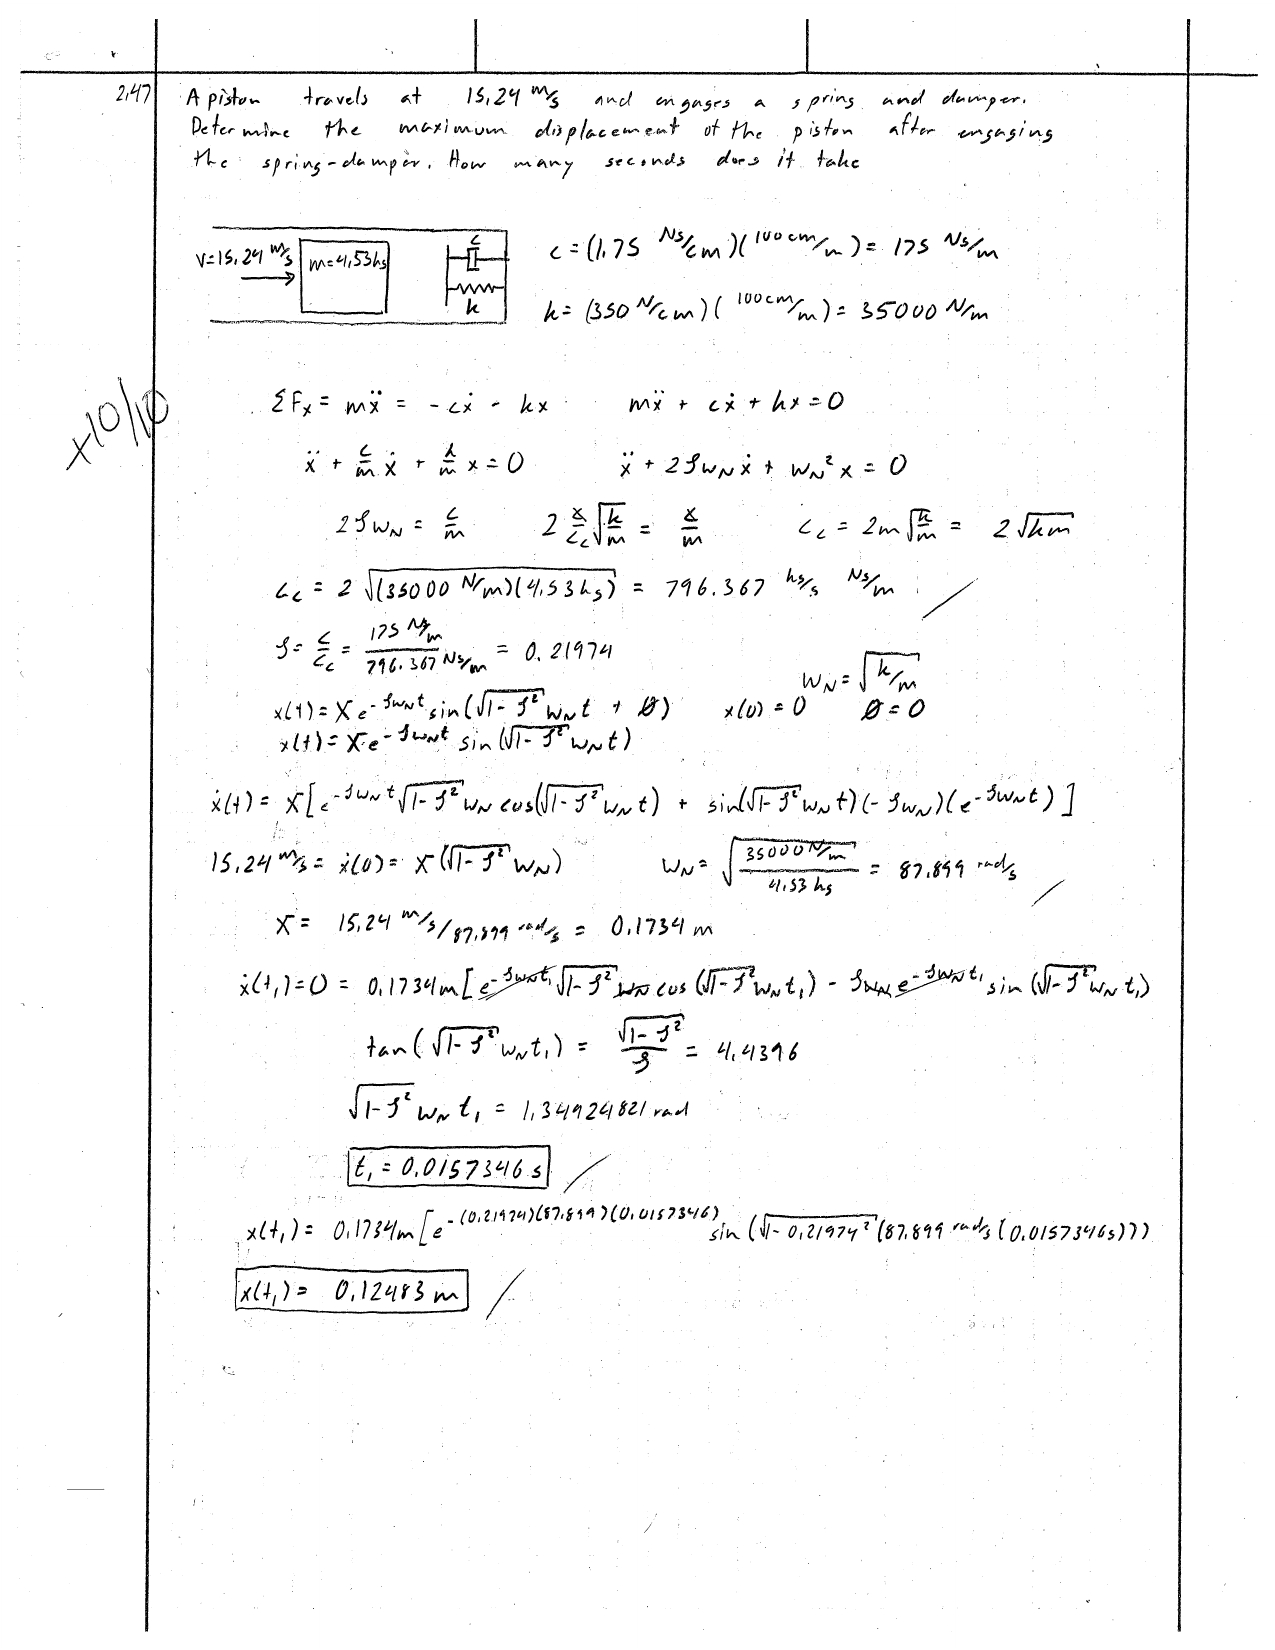 2.47 A piston travels at 15.24 m/s and engages a spring and damper.
Determine the maximum displacement of the piston after engaging
the spring-damper. How many seconds does it take
V=15.24 m/s m=4.53kg c k
c = (1.75 Ns/cm)(100cm/m) = 175 Ns/m
k = (350 N/cm)(100cm/m) = 35000 N/m
+10/10
ΣFx = mẍ = -cẋ - kx mẍ + cẋ + kx = 0
ẍ + c/m ẋ + k/m x = 0 ẍ + 2ζω_N ẋ + ω_N² x = 0
2ζω_N = c/m 2 c/c_c √(k/m) = c/m c_c = 2m√(k/m) = 2√(km)
c_c = 2√((35000 N/m)(4.53kg)) = 796.367 kg/s Ns/m
ζ = c/c_c = 175 Ns/m / 796.367 Ns/m = 0.21974
ω_N = √(k/m)
x(t) = X e^(-ζω_N t) sin(√(1-ζ²) ω_N t + ø) x(0) = 0 ø = 0
x(t) = X e^(-ζω_N t) sin(√(1-ζ²) ω_N t)
ẋ(t) = X[e^(-ζω_N t) √(1-ζ²) ω_N cos(√(1-ζ²) ω_N t) + sin(√(1-ζ²) ω_N t)(-ζω_N)(e^(-ζω_N t))]
15.24 m/s = ẋ(0) = X(√(1-ζ²) ω_N) ω_N = √(35000 N/m / 4.53 kg) = 87.899 rad/s
X = 15.24 m/s / 87.899 rad/s = 0.1734 m
ẋ(t₁) = 0 = 0.1734m[e^(-ζω_N t₁) √(1-ζ²) ω_N cos(√(1-ζ²) ω_N t₁) - ζω_N e^(-ζω_N t₁) sin(√(1-ζ²) ω_N t₁)
tan(√(1-ζ²) ω_N t₁) = √(1-ζ²)/ζ = 4.4396
√(1-ζ²) ω_N t₁ = 1.34924821 rad
t₁ = 0.0157346 s
x(t₁) = 0.1734m[e^(-(0.21974)(87.899)(0.0157346)) sin(√(1-0.21974²)(87.899 rad/s(0.0157346s)))
x(t₁) = 0.12483 m